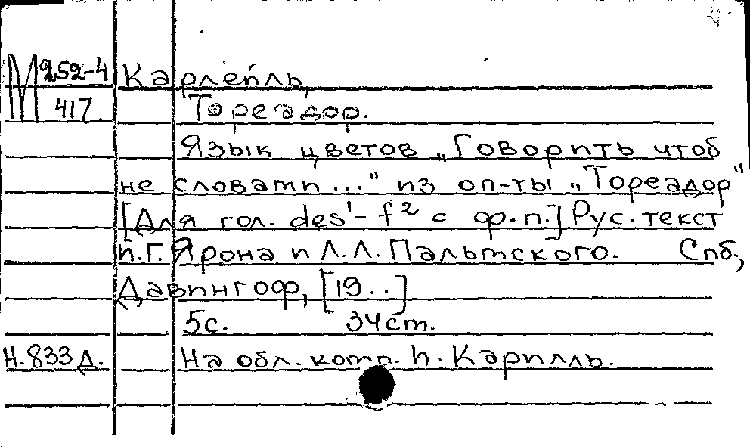 М 252-4 Карлейль,
417 Тореадор.
Язык цветов „Говорить чтоб
не словами..." из оп-ты „Тореадор"
[Для гол. des¹-f² с ф.п.] Рус. текст
И.Г. Ярона и Л.Л. Пальмского. Спб.,
Давингоф, [19..]
5с. 34см.
Н.833д. На обл. комп. И. Карилль.